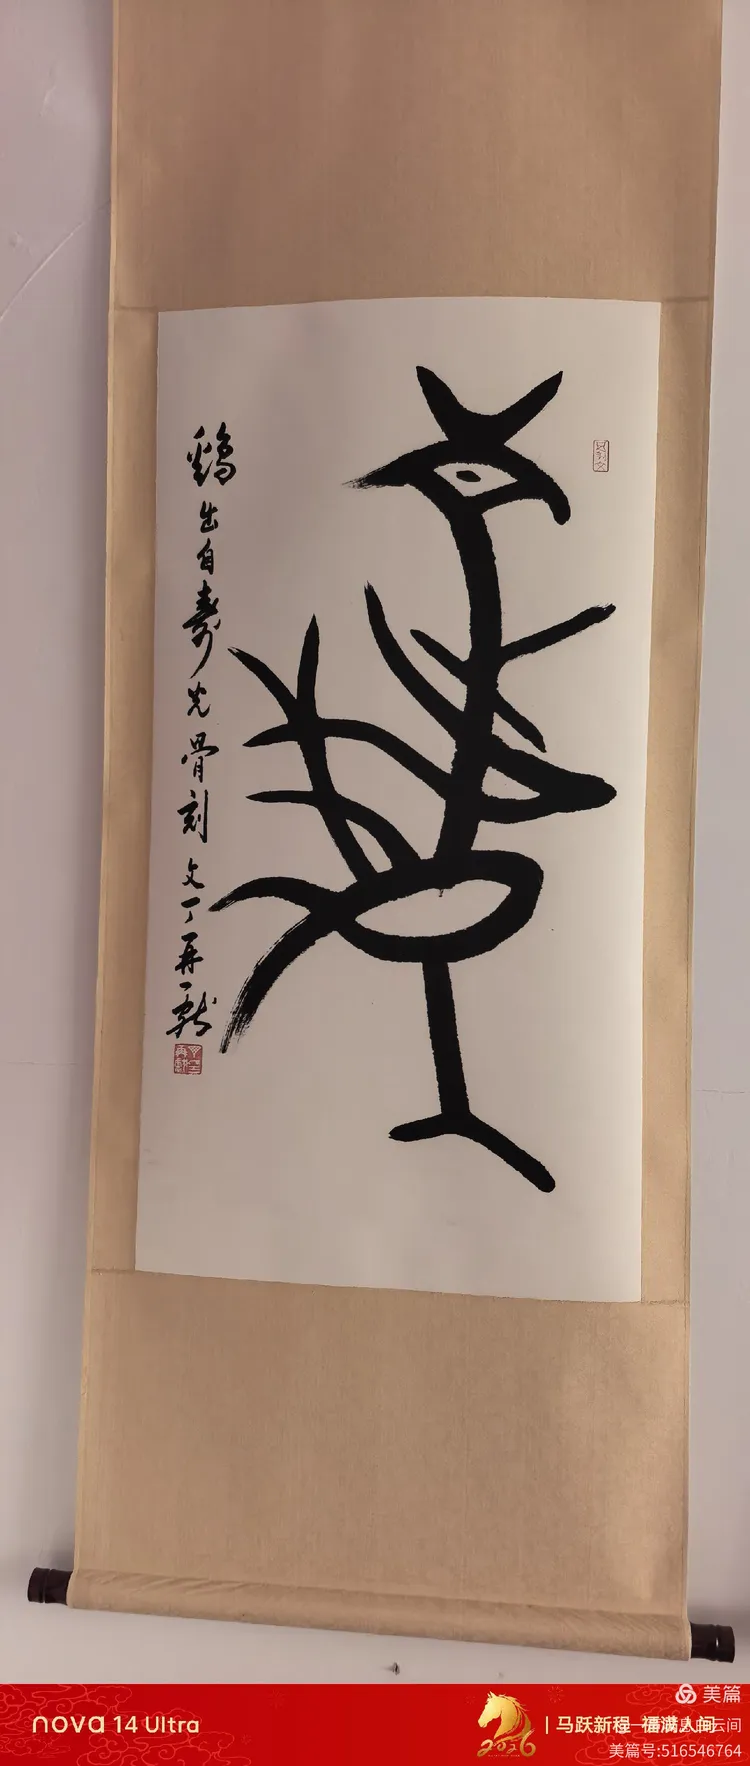 鷄出自寿光骨刻文丁再献
nova 14 Ultra
2026
马跃新程 福满人间
美篇
美篇号:516546764